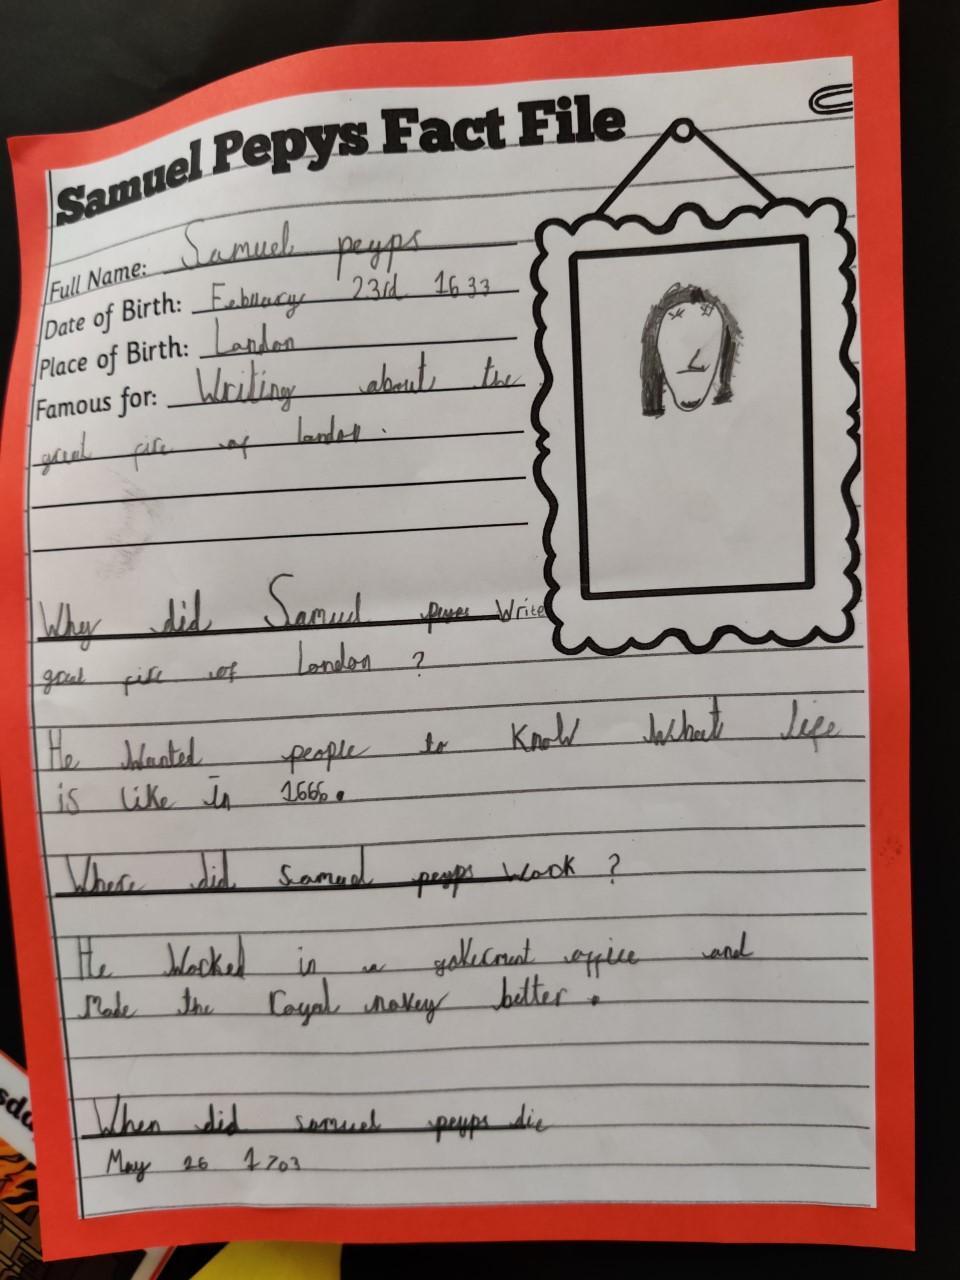 Samuel Pepys Fact File
Full Name: Samuel peyps
Date of Birth: February 23rd 1633
Place of Birth: London
Famous for: Writing about the
great fire of london.
Why did Samuel Write
great fire of London ?
He Wanted people to Know What life
is like in 1666.
Where did samuel peyps work ?
He Worked in a goverment office and
Made the Royal navey better.
When did samuel peyps die
May 26 1703
sda